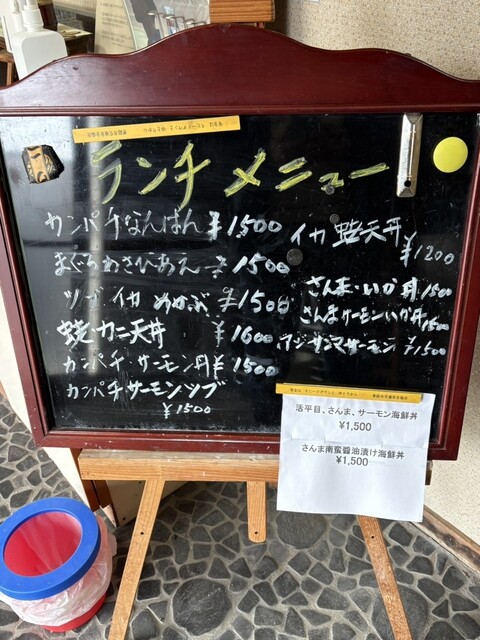 ランチメニュー
カンパチなんばん ¥1500
まぐろわさびあえ ¥1500
ツブ イカ めかぶ ¥1500
海老・カニ天丼 ¥1600
カンパチ・サーモン丼 ¥1500
カンパチサーモンツブ
¥1500
イカ 海老天丼
¥1200
さんま・いか丼 1500
さんまサーモンいか丼
1500
サーモン ¥1500
活平目、さんま、サーモン海鮮丼
¥1,500
さんま南蛮醤油漬け海鮮丼
¥1,500